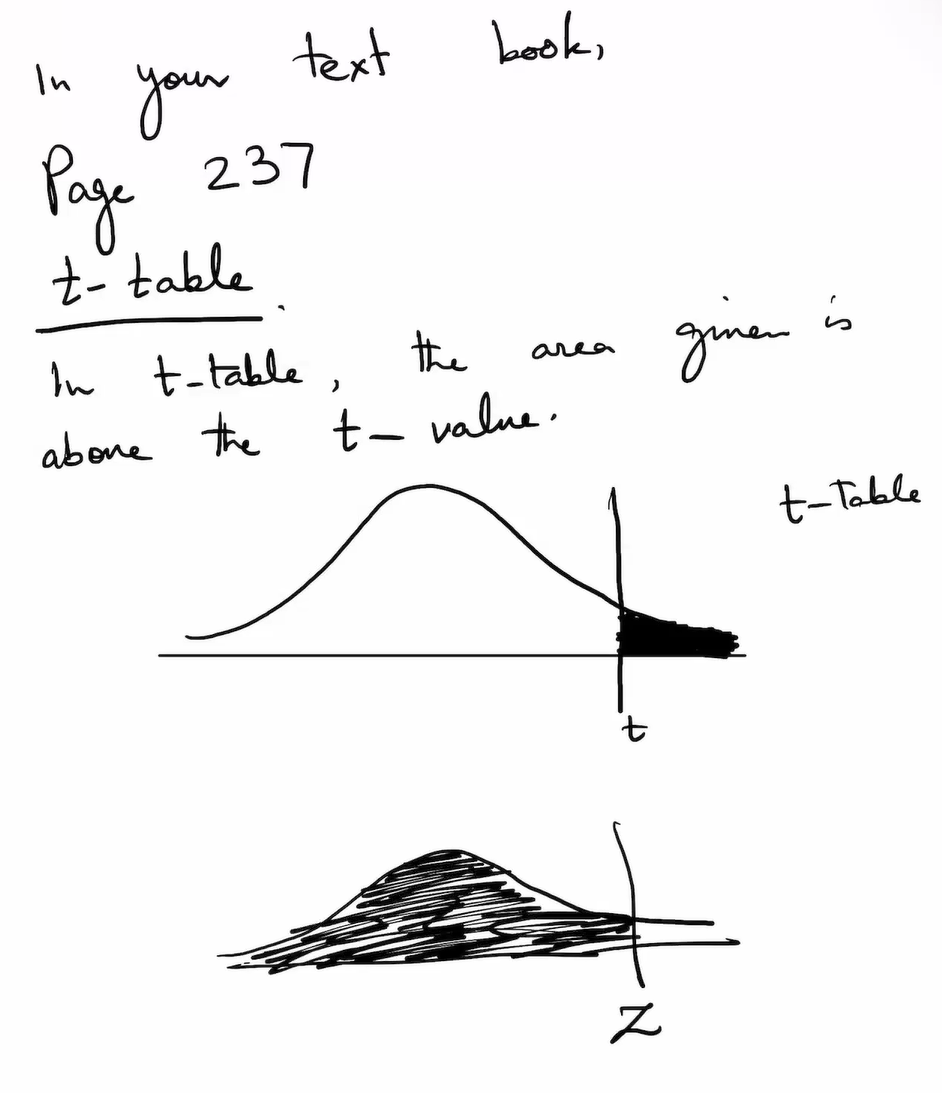 In your text book,
Page 237
t-table.
In t-table, the area given is
above the t-value.
t-Table
t
Z